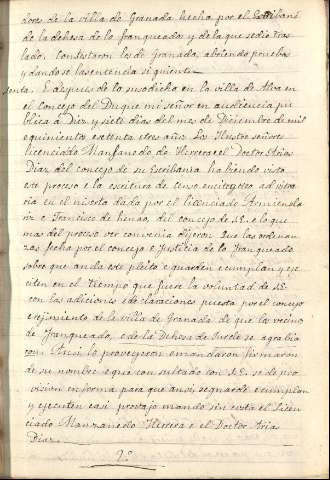 dores de la villa de Granada hecha por el Escribano
de la dehesa de lo franqueado y dela que sedio tras
lado. Contestaron los de Granada, abriendo prueba
y dando se la sentencia si guiente
senta. E despues de lo susodicho en la villa de Alva en
el Concejo del Duque mi señor en audiencia pu
blica à Diez y siete dias del mes de Diciembre de mil
equinientos esetenta e tres años los Ilustre señores
licenciado Manzanedo de Herrera el Doctor Arias
Diaz del concejo de su Escribania habiendo visto
este proceso e la escritura de censo
en el inserta dada por el licenciado
riz e Francisco de henao, del concejo de S.E. e lo que
mas del proceso ver convenia dijeron Que las ordenan
zas fecha por el concejo e Justicia de lo franqueado
sobre que anda este pleito e guarden e cumplan y eje
cuten en el tiempo que fuere la voluntad de S.E.
con las adiciones e declaraciones puesta por el concejo
e rejimiento de la villa de Granada de que los vecino
de franqueado, e de la Dehesa de se agrabia
con. Ansi lo proveyeron e mandaron e firmaron
de su nombre e que consultado con S.E. se de pro
vision en forma para que ansi segnarde e cumplan
y ejecuten e asi mando sin costa el Licen
ciado Manzanedo Herrera e el Doctor Arias
Diaz.